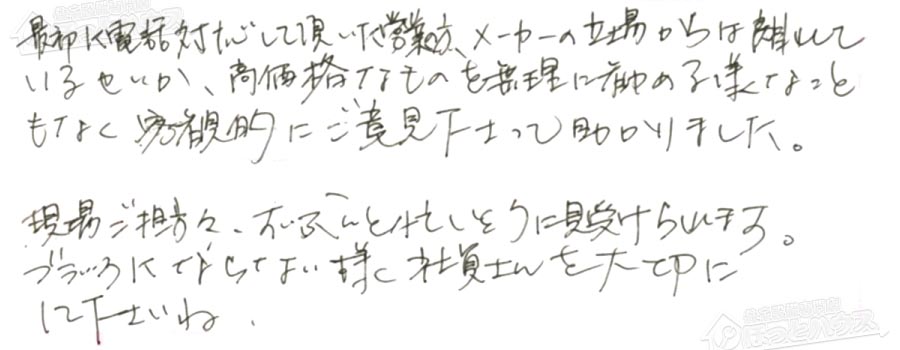 最初に電話対応して頂いた営業の方、メーカーの立場からは離れて
いるせいか、高価格なものを無理に勧める様なこと
もなく客観的にご意見下さって助かりました。
現場ご担方々、ずいぶんと忙しそうに見受けられます。
ブラックにならない様に社員さんを大切に
して下さいね。
ほっとハウス